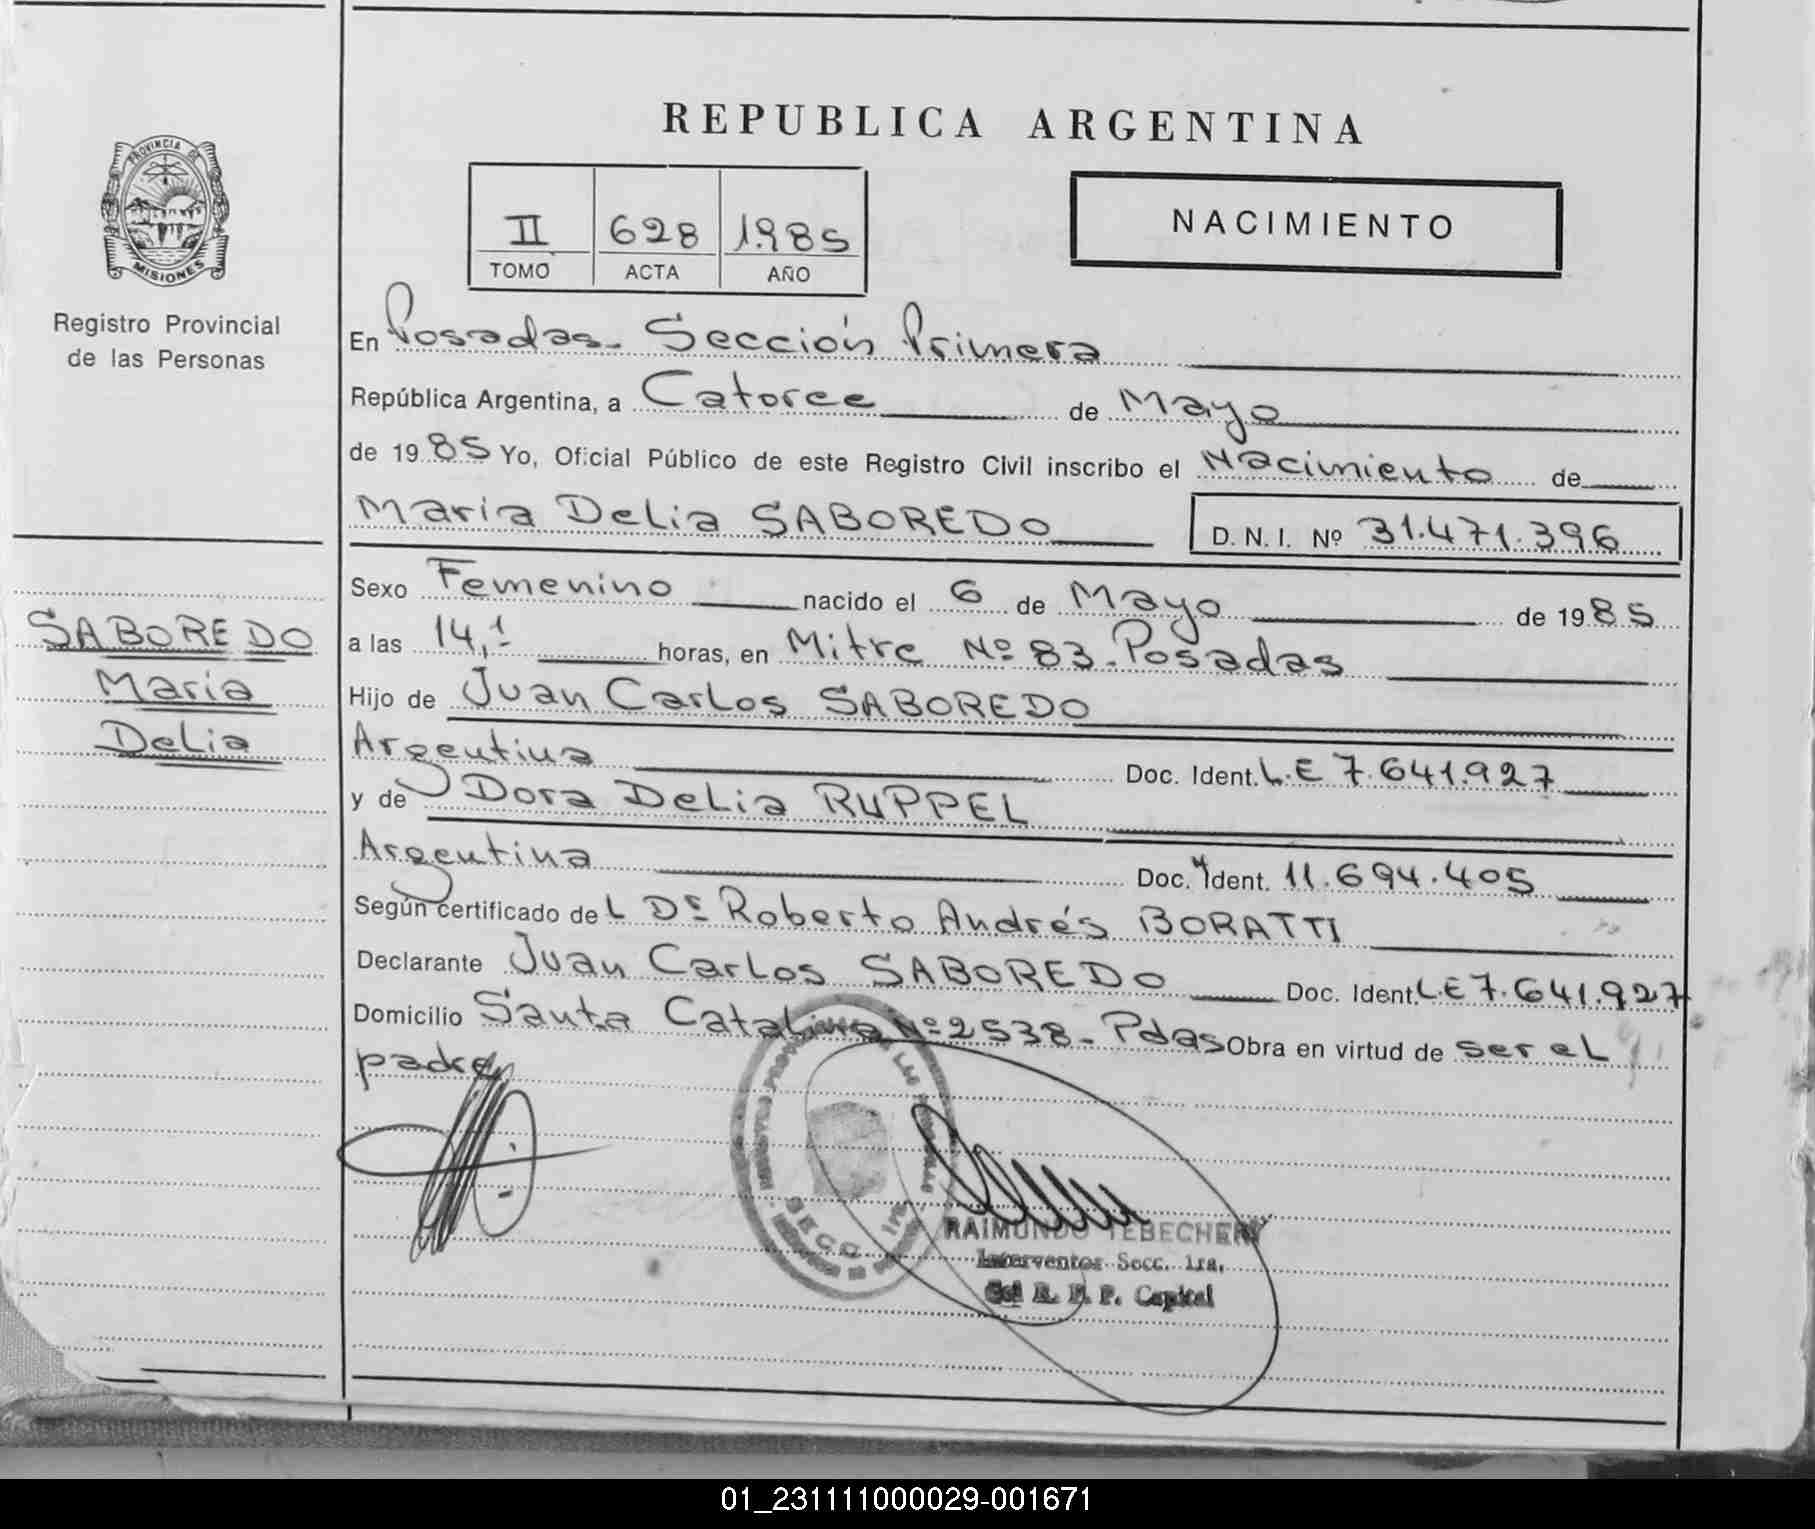 REPUBLICA ARGENTINA
PROVINCIA DE
MISIONES
Registro Provincial
de las Personas
II 628 1.985
TOMO ACTA AÑO
NACIMIENTO
En Posadas. Sección Primera
República Argentina, a Catorce de Mayo
de 1985 Yo, Oficial Público de este Registro Civil inscribo el Nacimiento de
Maria Delia SABOREDO D. N. I. Nº 31.471.396
SABOREDO
Maria
Delia
Sexo Femenino nacido el 6 de Mayo de 1985
a las 14,1 horas, en Mitre Nº 83. Posadas
Hijo de Juan Carlos SABOREDO
Argentina Doc. Ident. L.E 7.641.927
y de Dora Delia RUPPEL
Argentina Doc. Ident. 11.694.405
Según certificado del Dr Roberto Andrés BORATTI
Declarante Juan Carlos SABOREDO Doc. Ident L.E 7.641.927
Domicilio Santa Catalina Nº 2538. Pdas Obra en virtud de ser el
padre
SECC. 1ra.
RAIMUNDO TEBECHERY
Interventor Secc. 1ra.
R. P. P. Capital
01_231111000029-001671